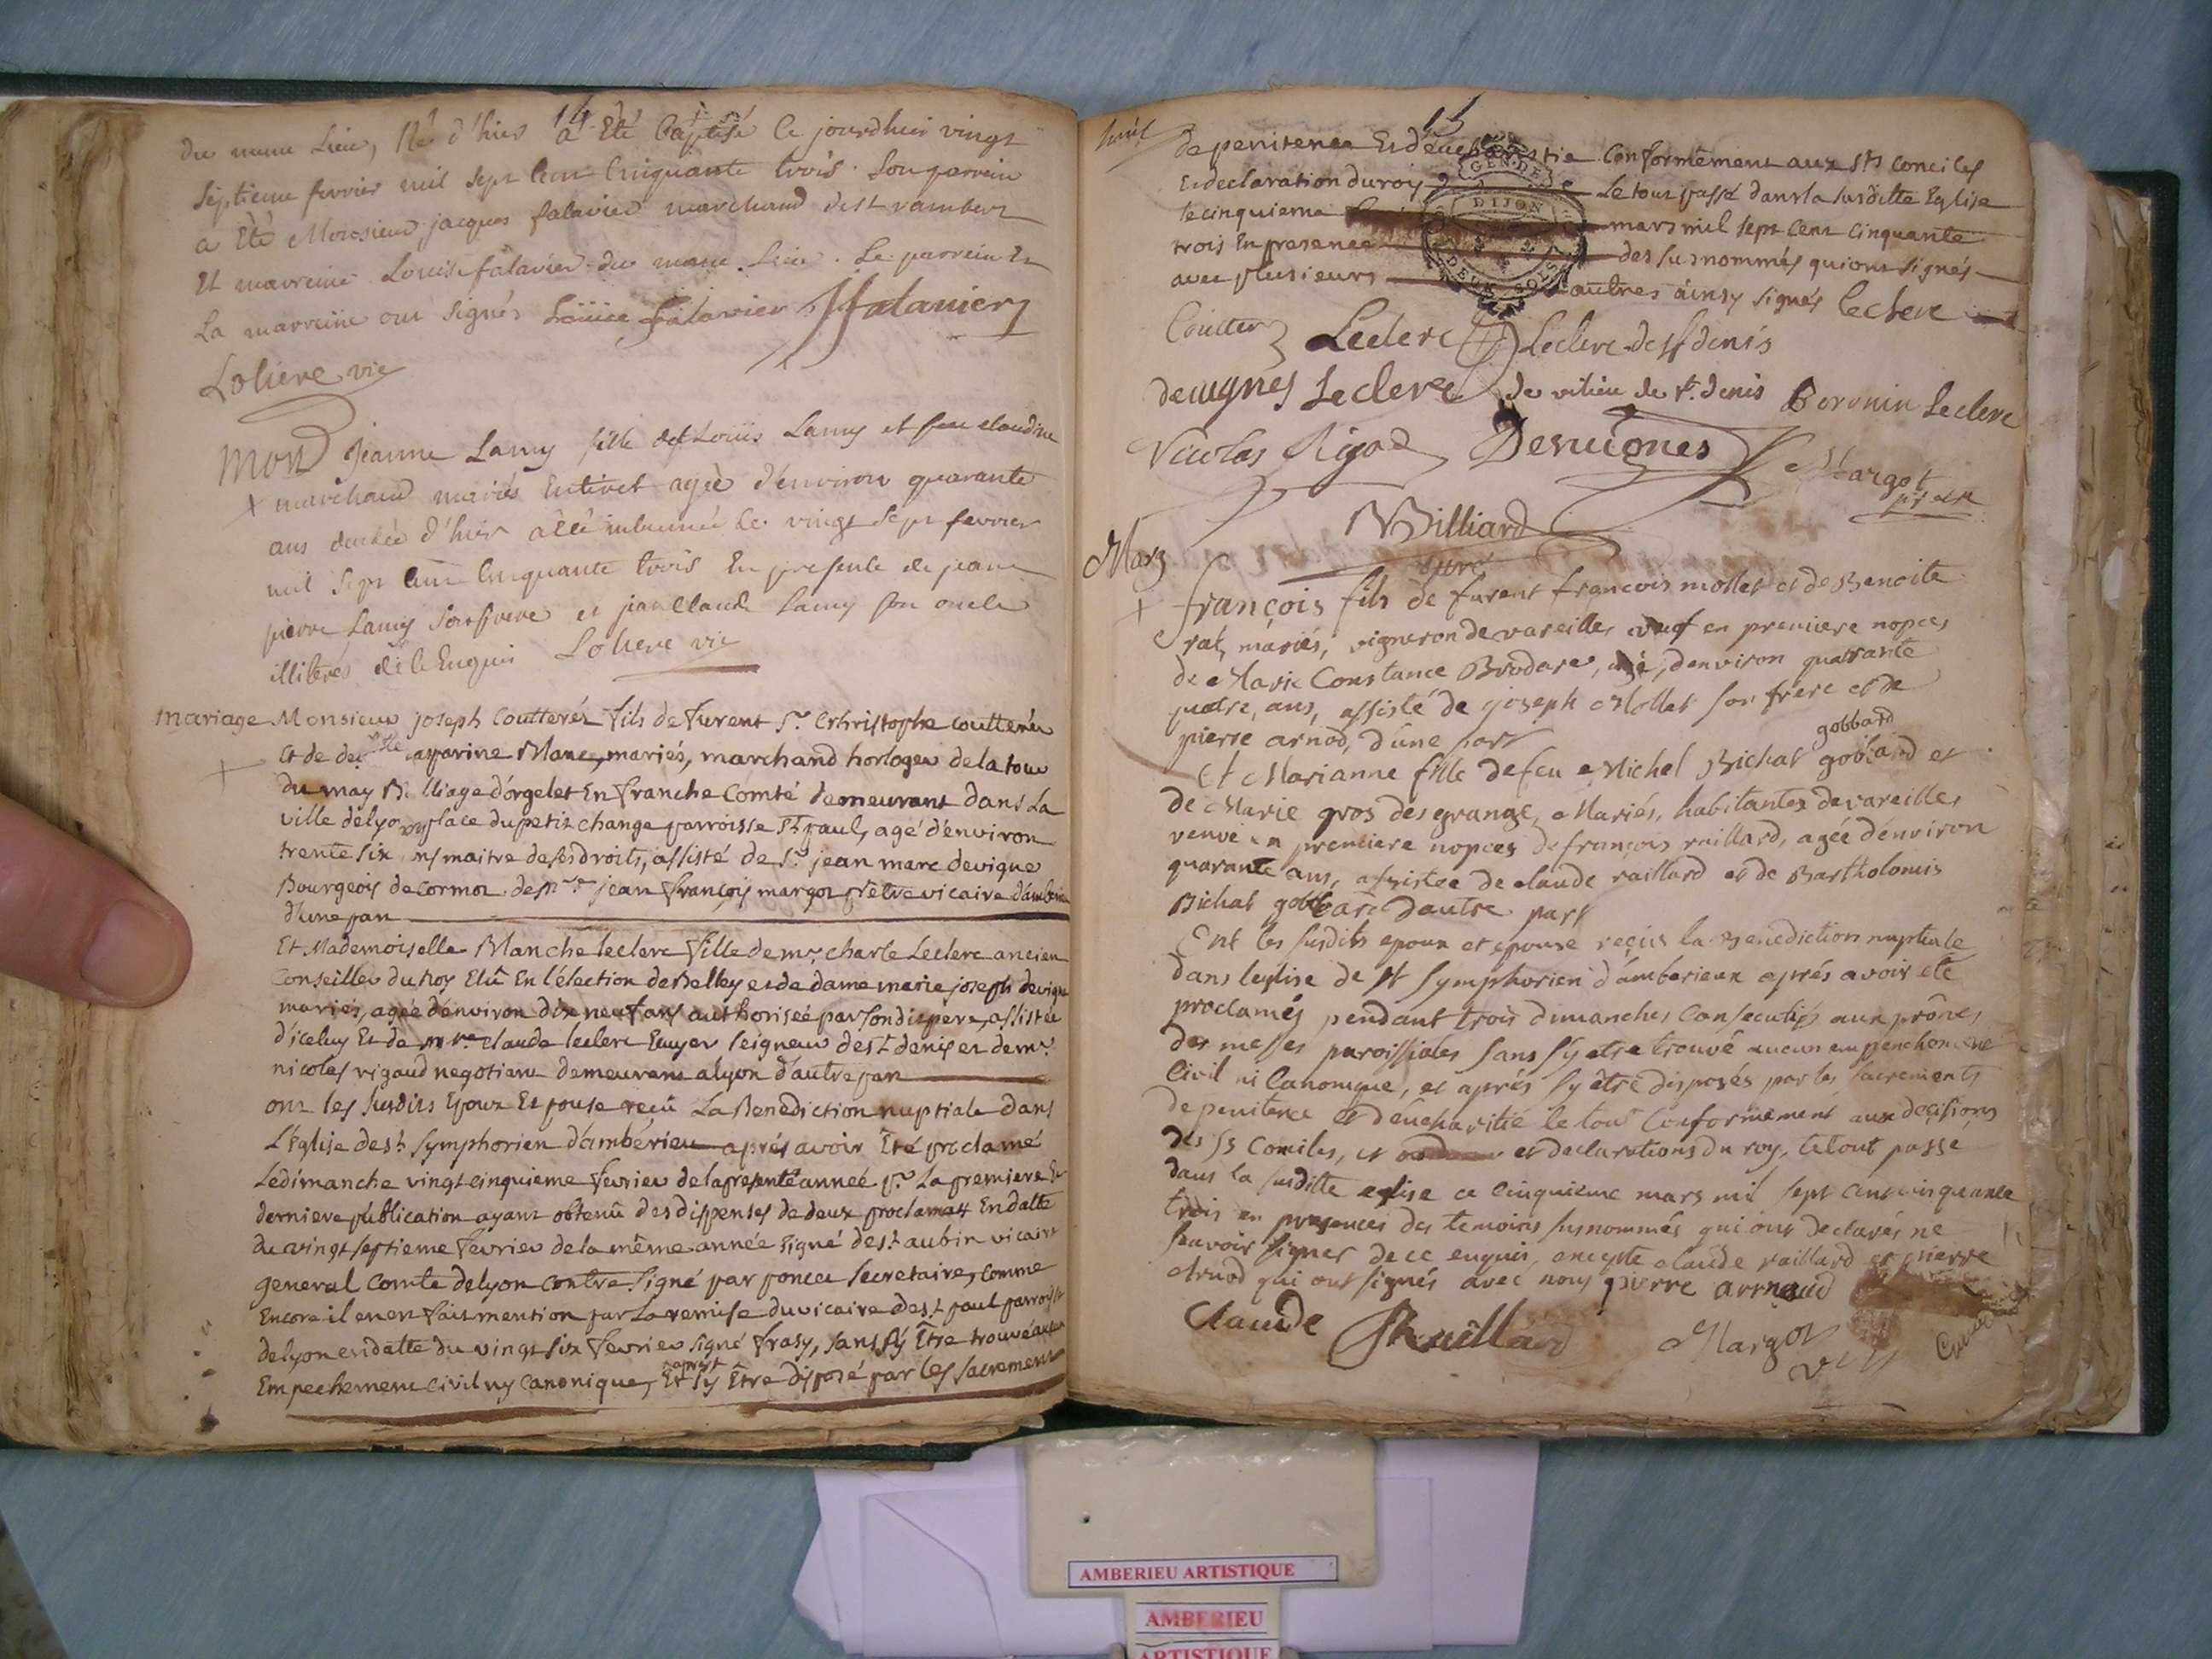 14
du meme Lieu, Né d'hier a Eté baptisé Ce jourdhui vingt
septieme fevrier mil sept Cent Cinquante trois. Son parrein
a Eté Monsieur jacques falavier marchand de st rambert
Et marreine Louise falavier du meme Lieu. Le parrein Et
La marreine ont signés Louise falavier JFalavier
Loliere vic
Mort Jeanne Lamy fille de Loüis Lamy et feu claudine
+ marchand mariés Entivet agée d'environ quarante
ans decedée d'hier a été inhumée le vingt sept fevrier
mil Sept Cent Cinquante trois En presence de jean
pierre Lamy Son frere et jean Claude Lamy son oncle
illiterés de le Enquis Loliere vic
mariage Monsieur joseph Coutterez fils de furent Sr. Christophe coutterez
et de delle marie, mariés, marchand horloger de la tour
+
du may Billiage d'orgelet En franche Comté demeurant dans La
ville de lyon place du petit change parroisse St paul, agé d'environ
trente six ans maitre de ses droits, assisté de Sr. jean marc devigne
Bourgeois de Cormoz de Mre. jean françois margot prêtre vicaire d'amberieu
d'une part
Et Mademoiselle Blanche leclerc fille de mr. charle Leclerc ancien
Conseiller du Roy Elû En l'élection de Belley et de dame marie joseph devigne
mariés, agée d'environ dix neuf ans authorisée par son dit pere, assistée
d'iceluy Et de mre claude leclerc Ecuyer seigneur de st denis et de mr.
nicolas rigaud negotiant demeurant a lyon d'autre part
ont les Susdits Epoux Et Epouse reçû La Benediction nuptiale dans
L'Eglise de st. Symphorien d'amberieu aprés avoir Eté proclamé
Le dimanche vingt cinquieme fevrier de la presente année pr. La premiere Et
derniere publication ayant obtenû des dispenses de deux proclamats En datte
du vingt septieme fevrier de la même année signé de st. aubin vicaire
general Comte de lyon Contre Signé par ponce Secretaire, Comme
Encore il en en fait mention par la remise du vicaire de st paul parroisse
de lyon en datte du vingt six fevrier signé frasy, sans s'y Etre trouvé aucun
Empechement civil ny canonique, Et aprés s'y Etre disposé par les sacremens
15
de penitence Et d'eucharistie Conformément aux Sts conciles
Et declaration du roy Le tout passé dans la susditte Eglise
GEN. DE
DIJON
DEUX SOLS
le cinquieme mars mil sept Cent cinquante
trois En presence des susnommés qui ont signés
avec plusieurs autres ainsy signés leclerc
Coutter Leclerc Leclerc de st denis
devignes Leclerc de vilieu de st. denis Boronin leclerc
Nicolas Rigod Devuignes Margot
Billiard
curé
Marg
+
françois fils de furent francois mollet et de Benoite
rat, mariés, vigneron de vareilles veuf en premiere nopces
de Marie Constance Brodare, agé, denviron quarante
quatre, ans, assisté de joseph Mollet son frere et de
pierre arnod, d'une part
gobbard
Et Marianne fille de feu Michel Bichat et
de Marie gros desgrange, Mariés, habitantes de vareilles
veuve en premiere nopces de françois raillard, agée d'environ
quarante ans, assistée de claude raillard et de Bartholomis
Bichat gobbard dautre part
Ont les susdits epoux et epouse reçus la Benediction nuptiale
dans leglise de St Symphorien d'amberieux aprés avoir eté
proclamés pendant trois dimanches Consecutifs aux prônes
des messes paroissiales sans s'y etre trouvé aucun empenchement
Civil ni Canonique, et aprés s'y être disposés par les sacrements
de penitence et d'eucharitie le tout Conformement aux decisions
des SS Conciles, et et declarations du roy, le tout passé
dans la susditte eglise ce cinquieme mars mil sept cent cinquante
trois en presences des temoins susnommés qui ont declarés ne
scavoir signer de ce enquis, excepte claude raillard et pierre
Arnod qui ont signés avec nous pierre arrnaud
Claude Raillard Margot
vic